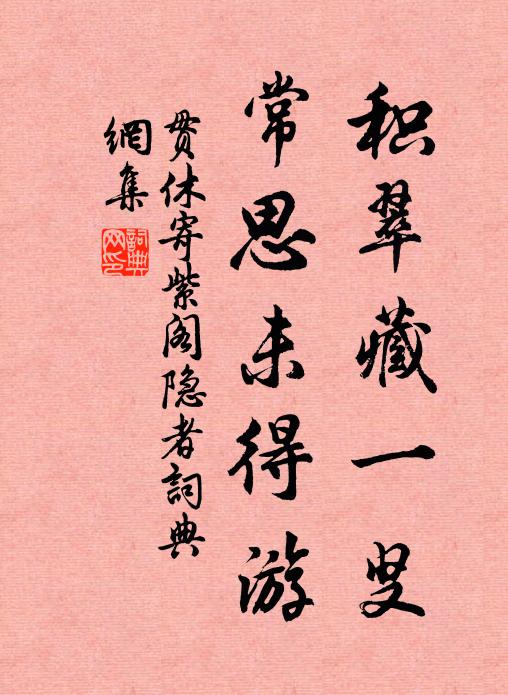 积翠藏一叟
常思未得游
贯休寄紫阁隐者詞典
網集
詞典網印